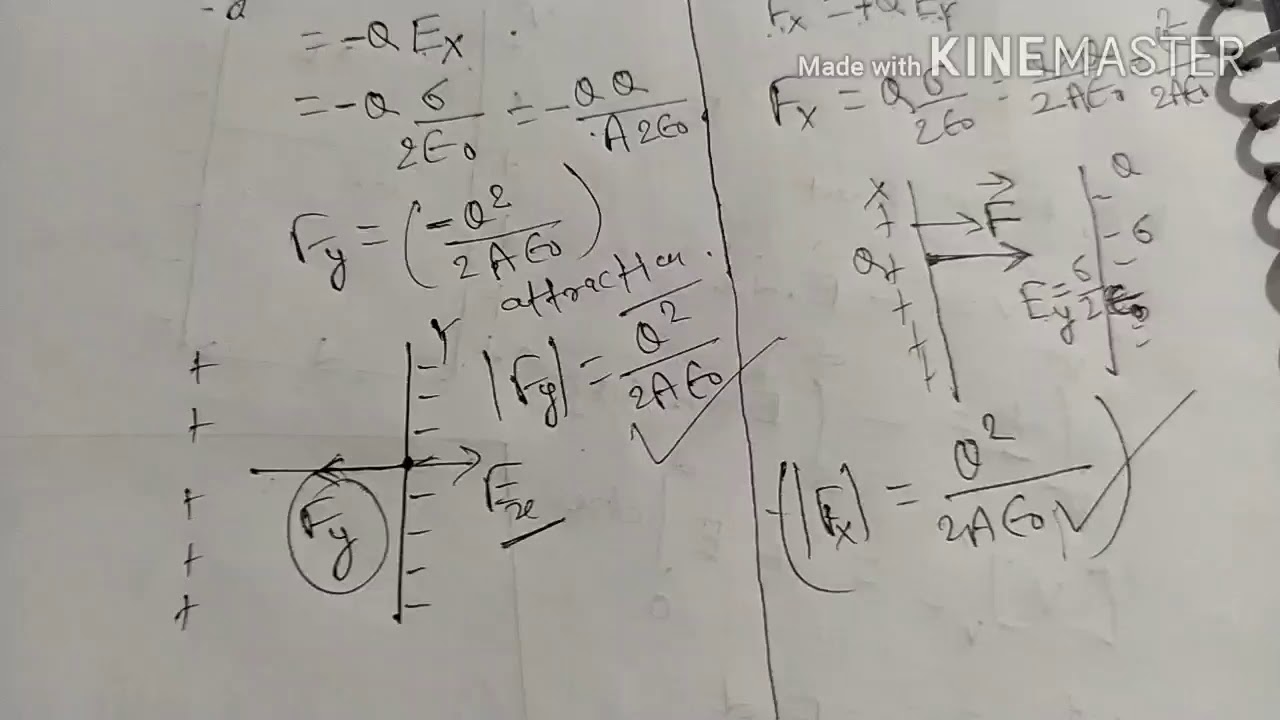 -Q
= -Q Ex
= -Q σ/2ε₀ = -QQ/A2ε₀
Fy = (-Q²/2Aε₀)
attraction
|Fy| = Q²/2Aε₀
Y
+
+
+
+
+
-
-
-
-
-
-
-
Fy
Ex
Fx = +Q Ey
Made with KINEMASTER
Fx = Q σ/2ε₀ = /2Aε₀ 2/2Aε₀
X
+
Q+
+
+
+
F
Q
-
- σ
-
-
Ey = σ/2ε₀
|Fx| = Q²/2Aε₀